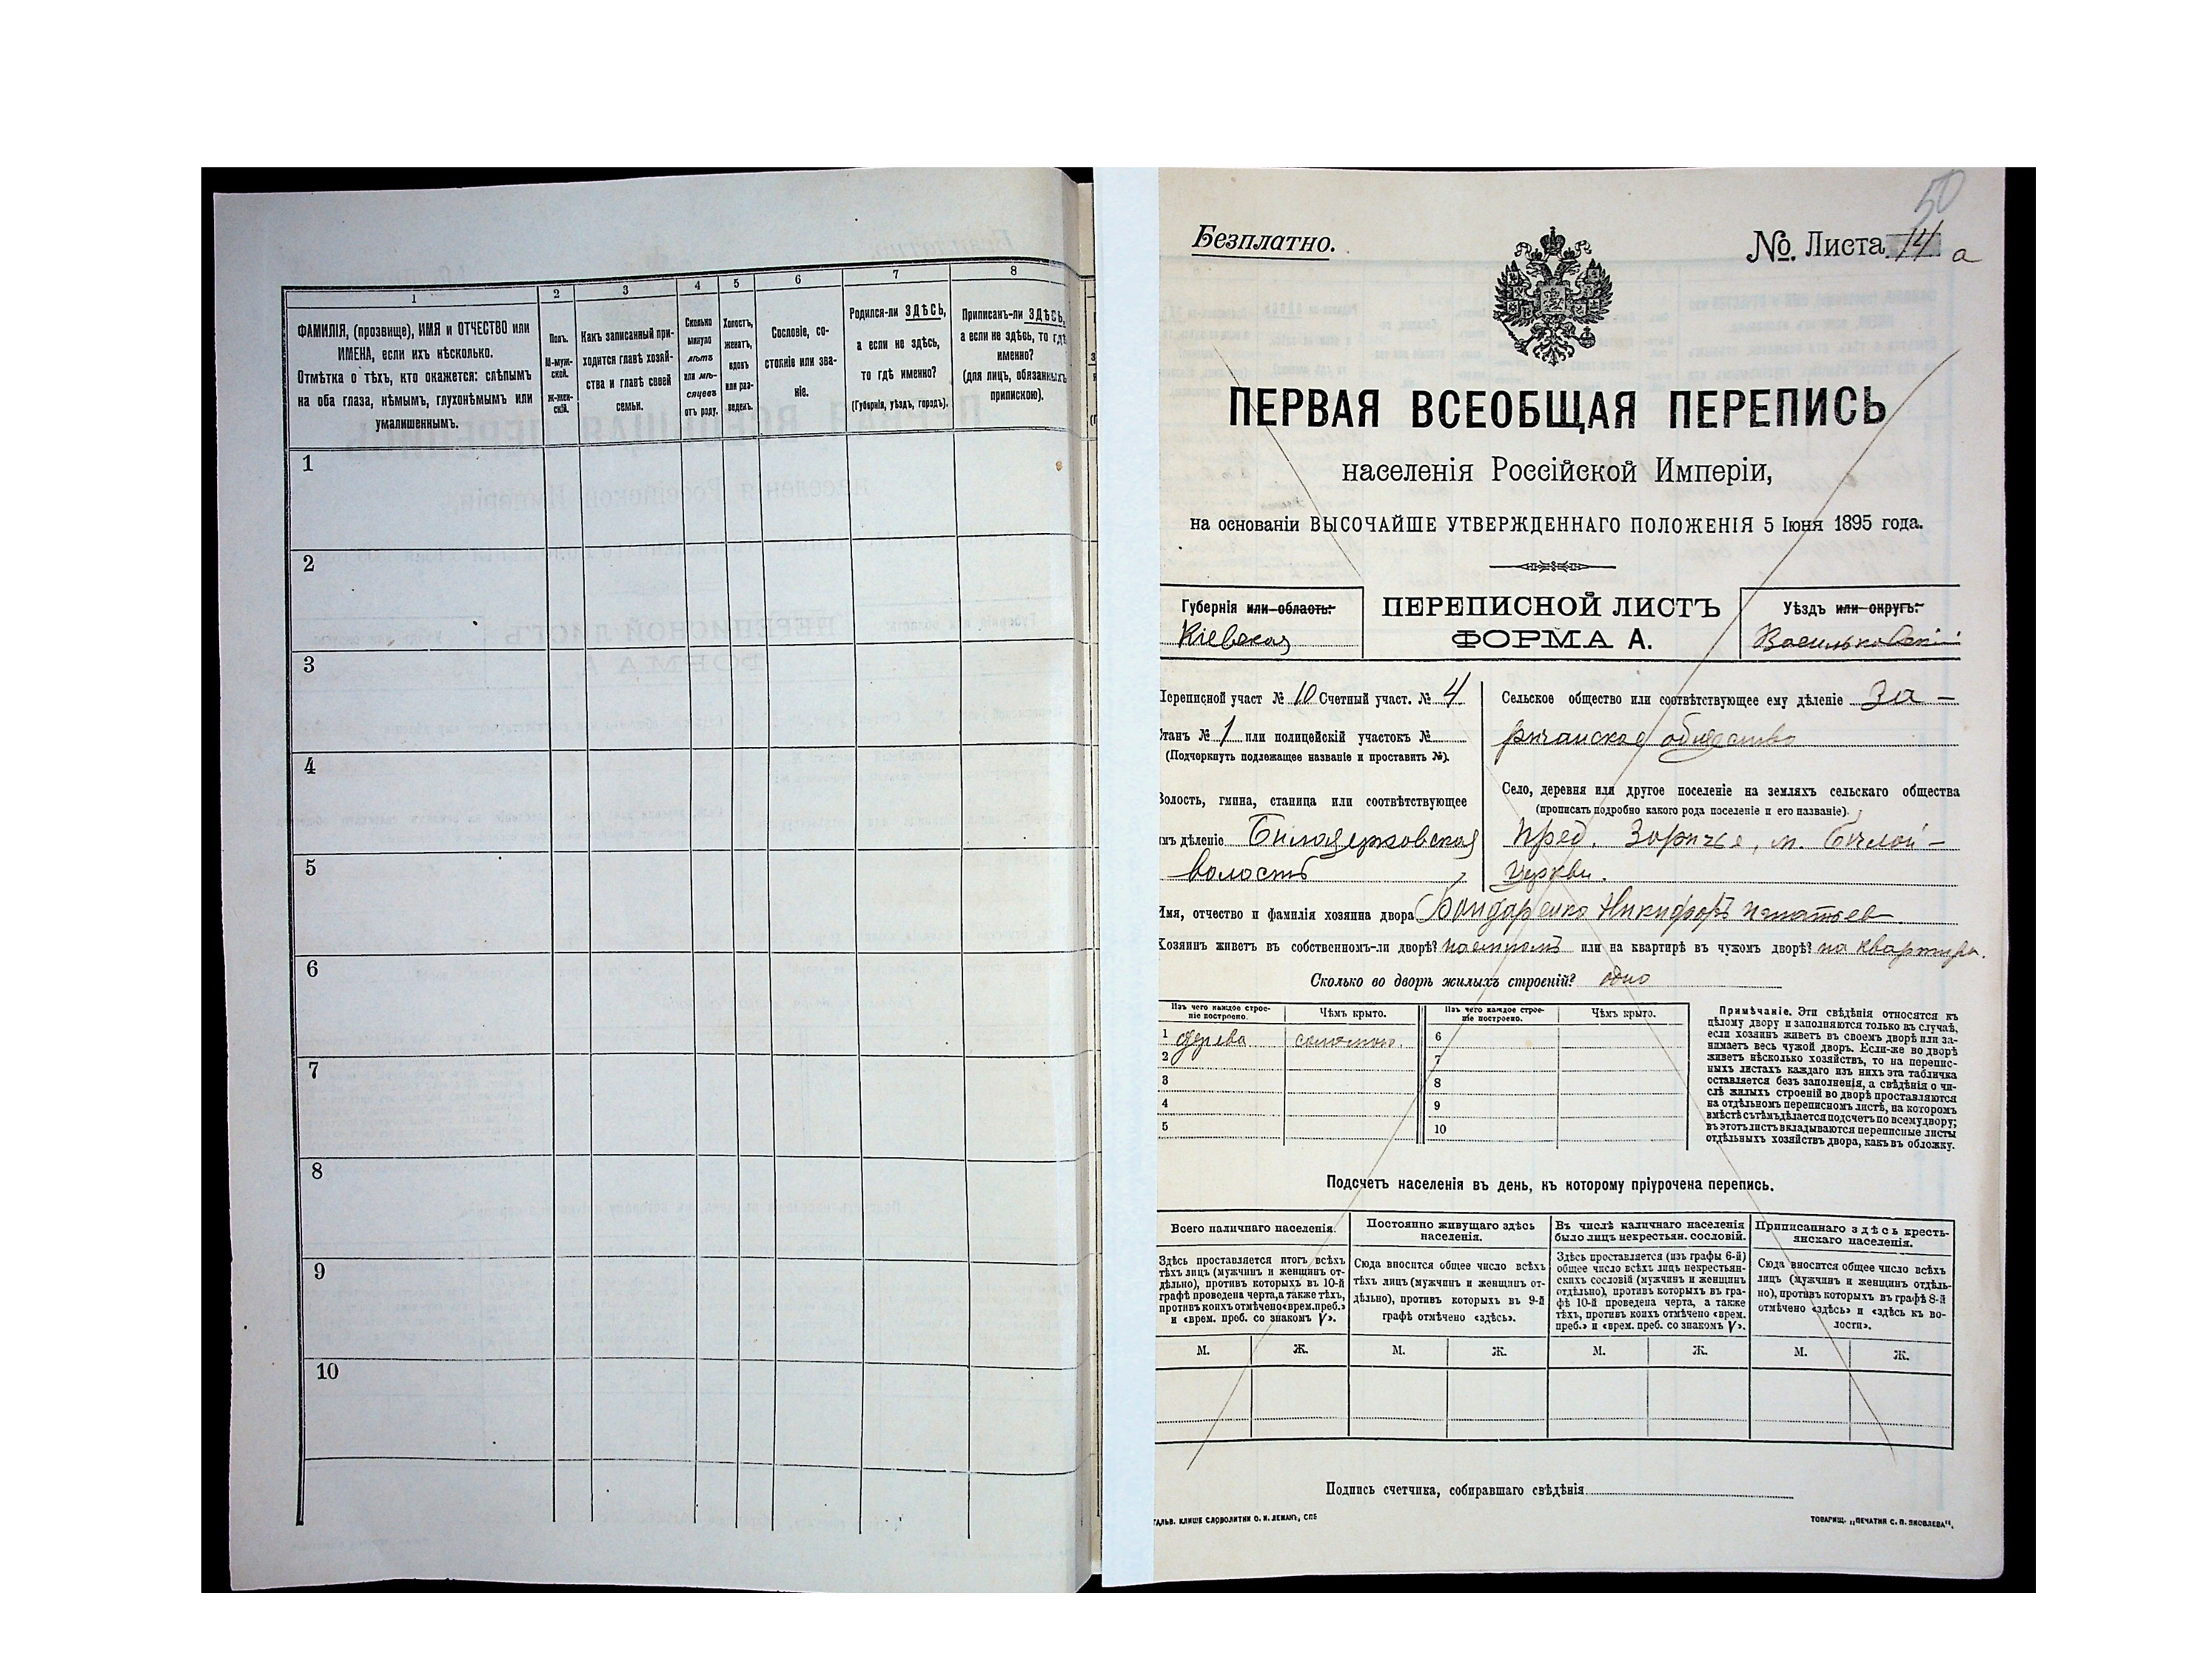 1
2
3
4
5
6
7
8
ФАМИЛІЯ, (прозвище), ИМЯ и ОТЧЕСТВО или
ИМЕНА, если ихъ нѣсколько.
Отмѣтка о тѣхъ, кто окажется: слѣпымъ
на оба глаза, нѣмымъ, глухонѣмымъ или
умалишеннымъ.
Полъ.
М-муж-
ской.
ж-жен-
скій.
Какъ записанный при-
ходится главѣ хозяй-
ства и главѣ своей
семьи.
Сколько
минуло
лѣтъ
или мѣ-
сяцевъ
отъ роду.
Холостъ,
женатъ,
вдовъ
или раз-
веденъ.
Сословіе, со-
стояніе или зва-
ніе.
Родился-ли ЗДѢСЬ,
а если не здѣсь,
то гдѣ именно?
(Губернія, уѣздъ, городъ).
Приписанъ-ли ЗДѢСЬ,
а если не здѣсь, то гдѣ
именно?
(для лицъ, обязанныхъ
припискою).
1
2
3
4
5
6
7
8
9
10
50
Безплатно.
№. Листа 14 а
ПЕРВАЯ ВСЕОБЩАЯ ПЕРЕПИСЬ
населенія Россійской Имперіи,
на основаніи ВЫСОЧАЙШЕ УТВЕРЖДЕННАГО ПОЛОЖЕНІЯ 5 Іюня 1895 года.
Губернія или область:
Кіевская
ПЕРЕПИСНОЙ ЛИСТЪ
ФОРМА А.
Уѣздъ или округъ:
Васильковскій
Переписной участ № 10 Счетный участ. № 4
Станъ № 1 или полицейскій участокъ №
(Подчеркнуть подлежащее названіе и проставить №).
Волость, гмина, станица или соотвѣтствующее
имъ дѣленіе Билоцерковская
волость
Сельское общество или соотвѣтствующее ему дѣленіе За-
ричанское общество
Село, деревня или другое поселеніе на земляхъ сельскаго общества
(прописать подробно какого рода поселеніе и его названіе).
пред. Заричье, м. Билой-
Церкви.
Имя, отчество и фамилія хозяина двора Бондаренко Никифоръ Игнатьев
Хозяинъ живетъ въ собственномъ-ли дворѣ? или на квартирѣ въ чужомъ дворѣ? на квартира.
Сколько во дворѣ жилыхъ строеній? одно
Изъ чего каждое строе-
ніе построено.
Чѣмъ крыто.
Изъ чего каждое строе-
ніе построено.
Чѣмъ крыто.
1 дерева соломою.
2
3
4
5
6
7
8
9
10
Примѣчаніе. Эти свѣдѣнія относятся къ
цѣлому двору и заполняются только въ случаѣ,
если хозяинъ живетъ въ своемъ дворѣ или за-
нимаетъ весь чужой дворъ. Если-же во дворѣ
живетъ нѣсколько хозяйствъ, то на перепис-
ныхъ листахъ каждаго изъ нихъ эта табличка
оставляется безъ заполненія, а свѣдѣнія о чи-
слѣ жилыхъ строеній во дворѣ проставляются
на отдѣльномъ переписномъ листѣ, на которомъ
вмѣстѣ съ тѣмъ дѣлается подсчетъ по всему двору;
въ этотъ листъ вкладываются переписные листы
отдѣльныхъ хозяйствъ двора, какъ въ обложку.
Подсчетъ населенія въ день, къ которому пріурочена перепись.
Всего наличнаго населенія.
Здѣсь проставляется итогъ всѣхъ
тѣхъ лицъ (мужчинъ и женщинъ от-
дѣльно), противъ которыхъ въ 10-й
графѣ проведена черта, а также тѣхъ,
противъ коихъ отмѣчено «врем. преб.»
и «врем. преб. со знакомъ V».
Постоянно живущаго здѣсь
населенія.
Сюда вносится общее число всѣхъ
тѣхъ лицъ (мужчинъ и женщинъ от-
дѣльно), противъ которыхъ въ 9-й
графѣ отмѣчено «здѣсь».
Въ числѣ наличнаго населенія
было лицъ некрестьян. сословій.
Здѣсь проставляется (изъ графы 6-й)
общее число всѣхъ лицъ некрестьян-
скихъ сословій (мужчинъ и женщинъ
отдѣльно), противъ которыхъ въ гра-
фѣ 10-й проведена черта, а также
тѣхъ, противъ коихъ отмѣчено «врем.
преб.» и «врем. преб. со знакомъ V».
Приписаннаго здѣсь кресть-
янскаго населенія.
Сюда вносится общее число всѣхъ
лицъ (мужчинъ и женщинъ отдѣль-
но), противъ которыхъ въ графѣ 8-й
отмѣчено «здѣсь» и «здѣсь къ во-
лости».
М. Ж. М. Ж. М. Ж. М. Ж.
Подпись счетчика, собиравшаго свѣдѣнія
ГАЛЬВ. КЛИШЕ СЛОВОЛИТНИ О. И. ЛЕМАНЪ, СПБ
ТОВАРИЩ. „ПЕЧАТНЯ С. П. ЯКОВЛЕВА“.